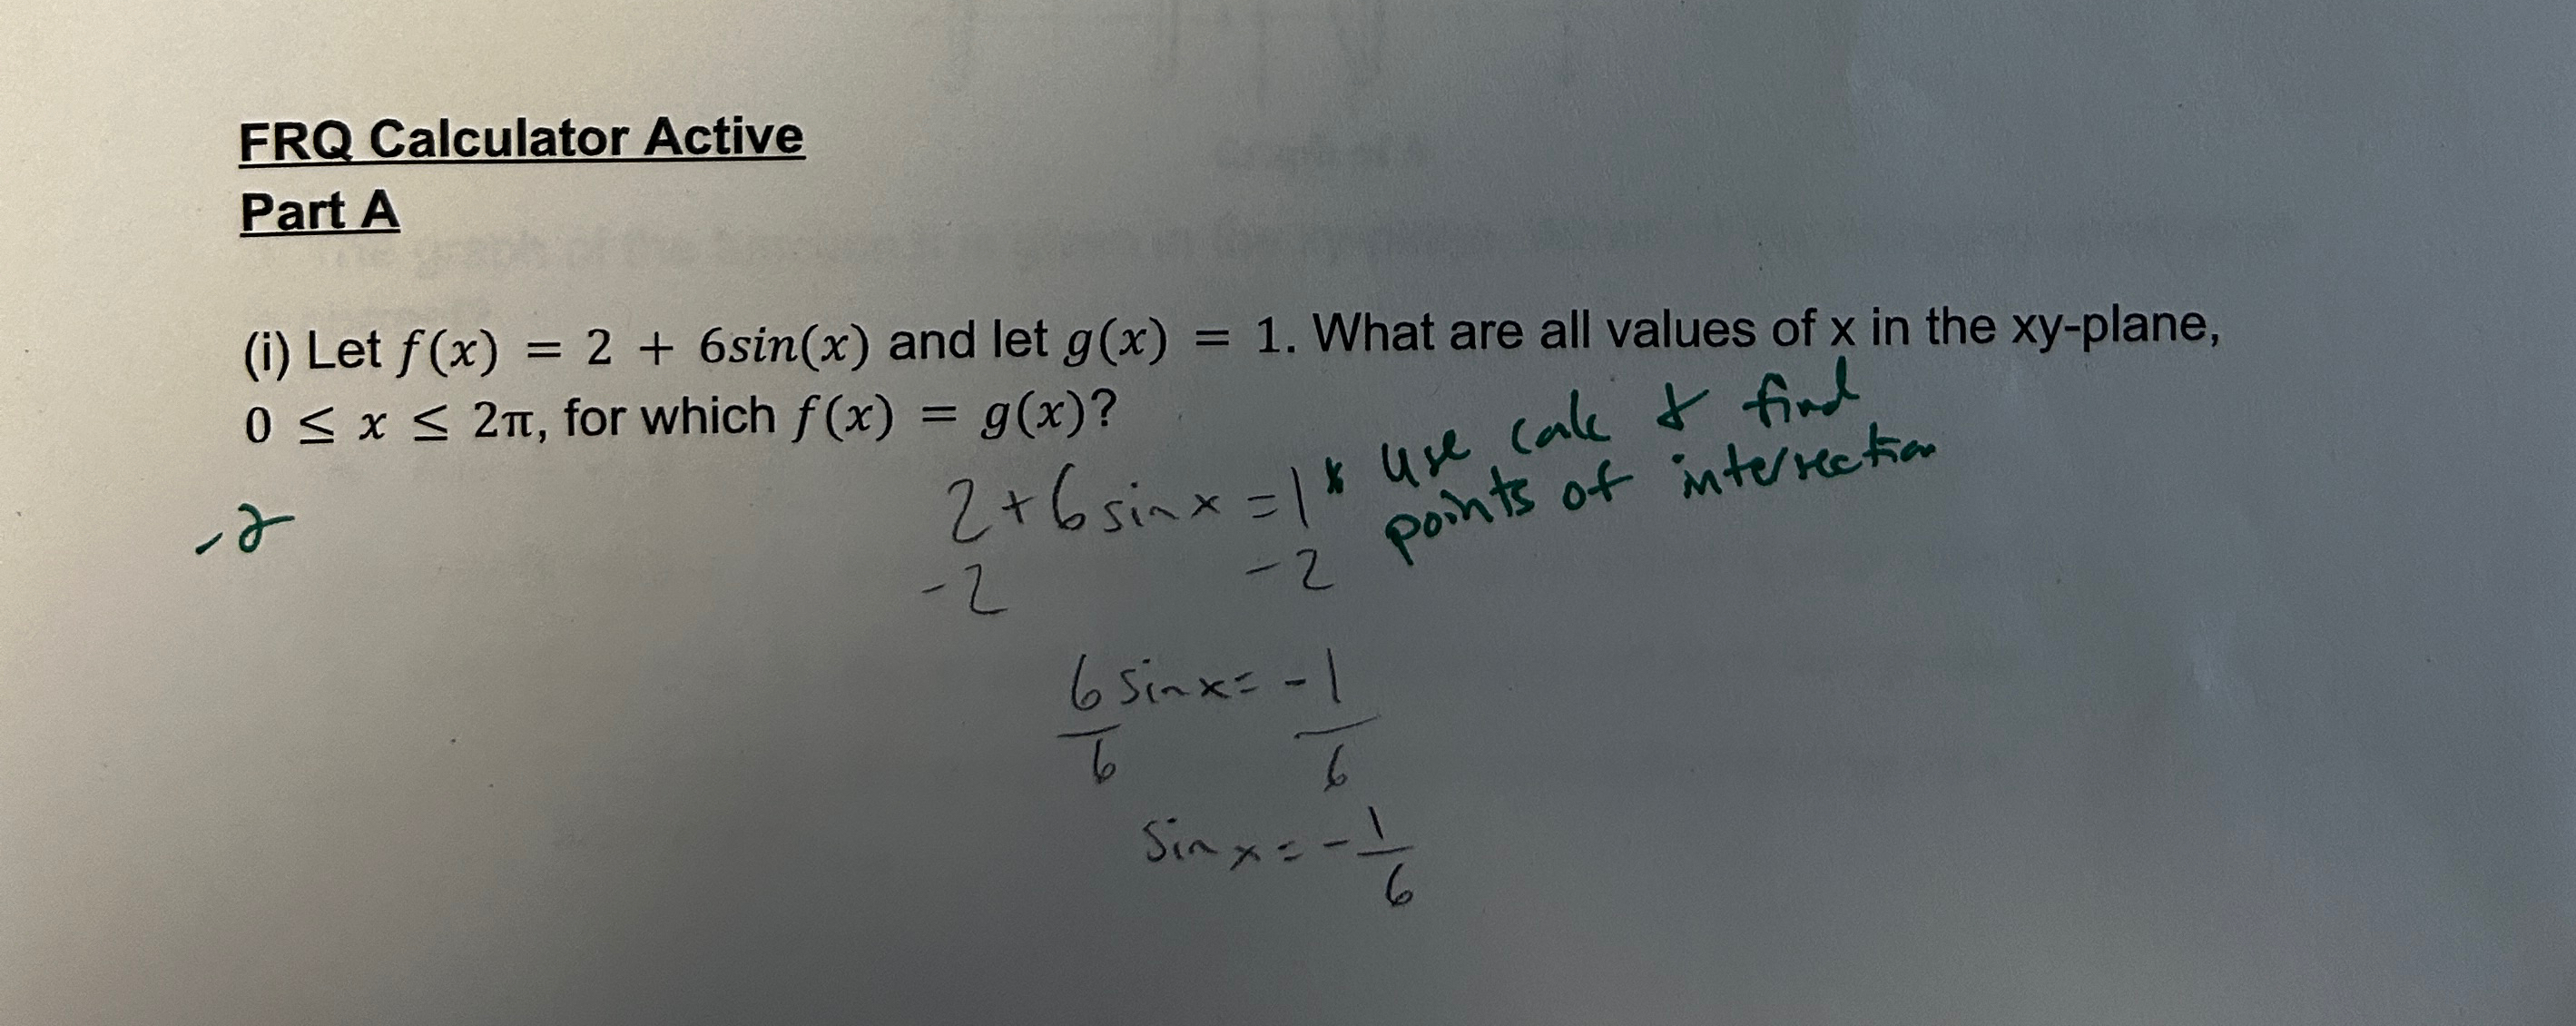 FRQ Calculator Active
Part A
(i) Let f(x) = 2 + 6sin(x) and let g(x) = 1. What are all values of x in the xy-plane,
0 ≤ x ≤ 2π, for which f(x) = g(x)?
* use calc & find
points of intersection
-2
2+6 sin x = 1
-2 -2
6 sin x = -1
6 6
sin x = - 1/6